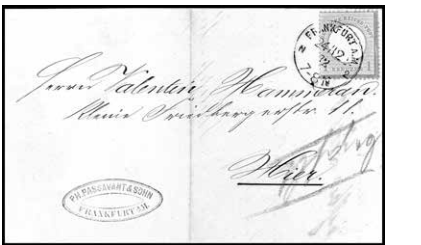 FRANKFURT A.M.
24 12
72
7-8 N
1
Herrn Valentin Hammeran.
kleine Friedbergerstr. 11.
Hier.
PH. PASSAVANT & SOHN
FRANKFURT A/M